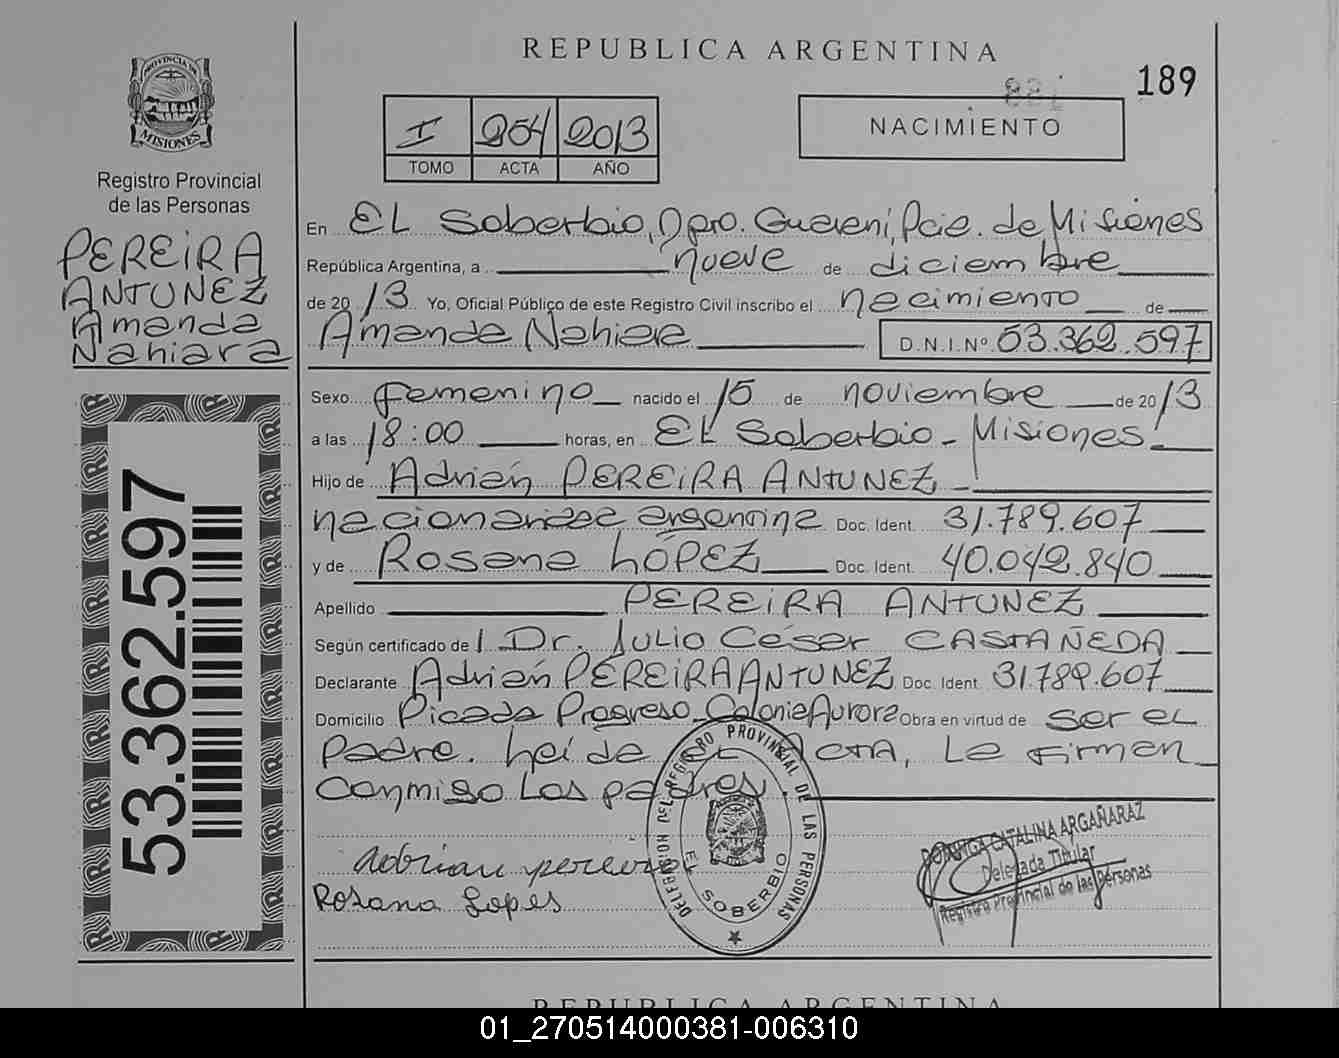 REPUBLICA ARGENTINA
189
PROVINCIA DE
MISIONES
Registro Provincial
de las Personas
PEREIRA
ANTUNEZ
Amanda
Nahiara
53.362.597
I 254 2013
TOMO ACTA AÑO
NACIMIENTO
En EL Soberbio, Dpro. Guarani, Pcia. de Misiones
República Argentina, a nueve de diciembre
de 20 13 Yo, Oficial Público de este Registro Civil inscribo el nacimiento de
Amanda Nahiara D.N.I.Nº 53.362.597
Sexo femenino nacido el 15 de noviembre de 20 13
a las 18:00 horas, en EL Soberbio - Misiones
Hijo de Adrián PEREIRA ANTUNEZ
nacionalidad argentina Doc. Ident. 31.789.607
y de Rosana LÓPEZ Doc. Ident. 40.042.840
Apellido PEREIRA ANTUNEZ
Según certificado de Dr. JULIO César CASTAÑEDA
Declarante Adrián PEREIRA ANTUNEZ Doc. Ident. 31.789.607
Domicilio Picada Progreso Colonia Aurora Obra en virtud de ser el
padre. Leída el ACTA, La firman
conmigo Los padres.
DELEGACION DEL REGISTRO PROVINCIAL DE LAS PERSONAS
EL SOBERBIO
adrian pereira
Rosana Lopes
DOMINGA CATALINA ARGAÑARAZ
Delegada Titular
Registro Provincial de las Personas
REPUBLICA ARGENTINA
01_270514000381-006310